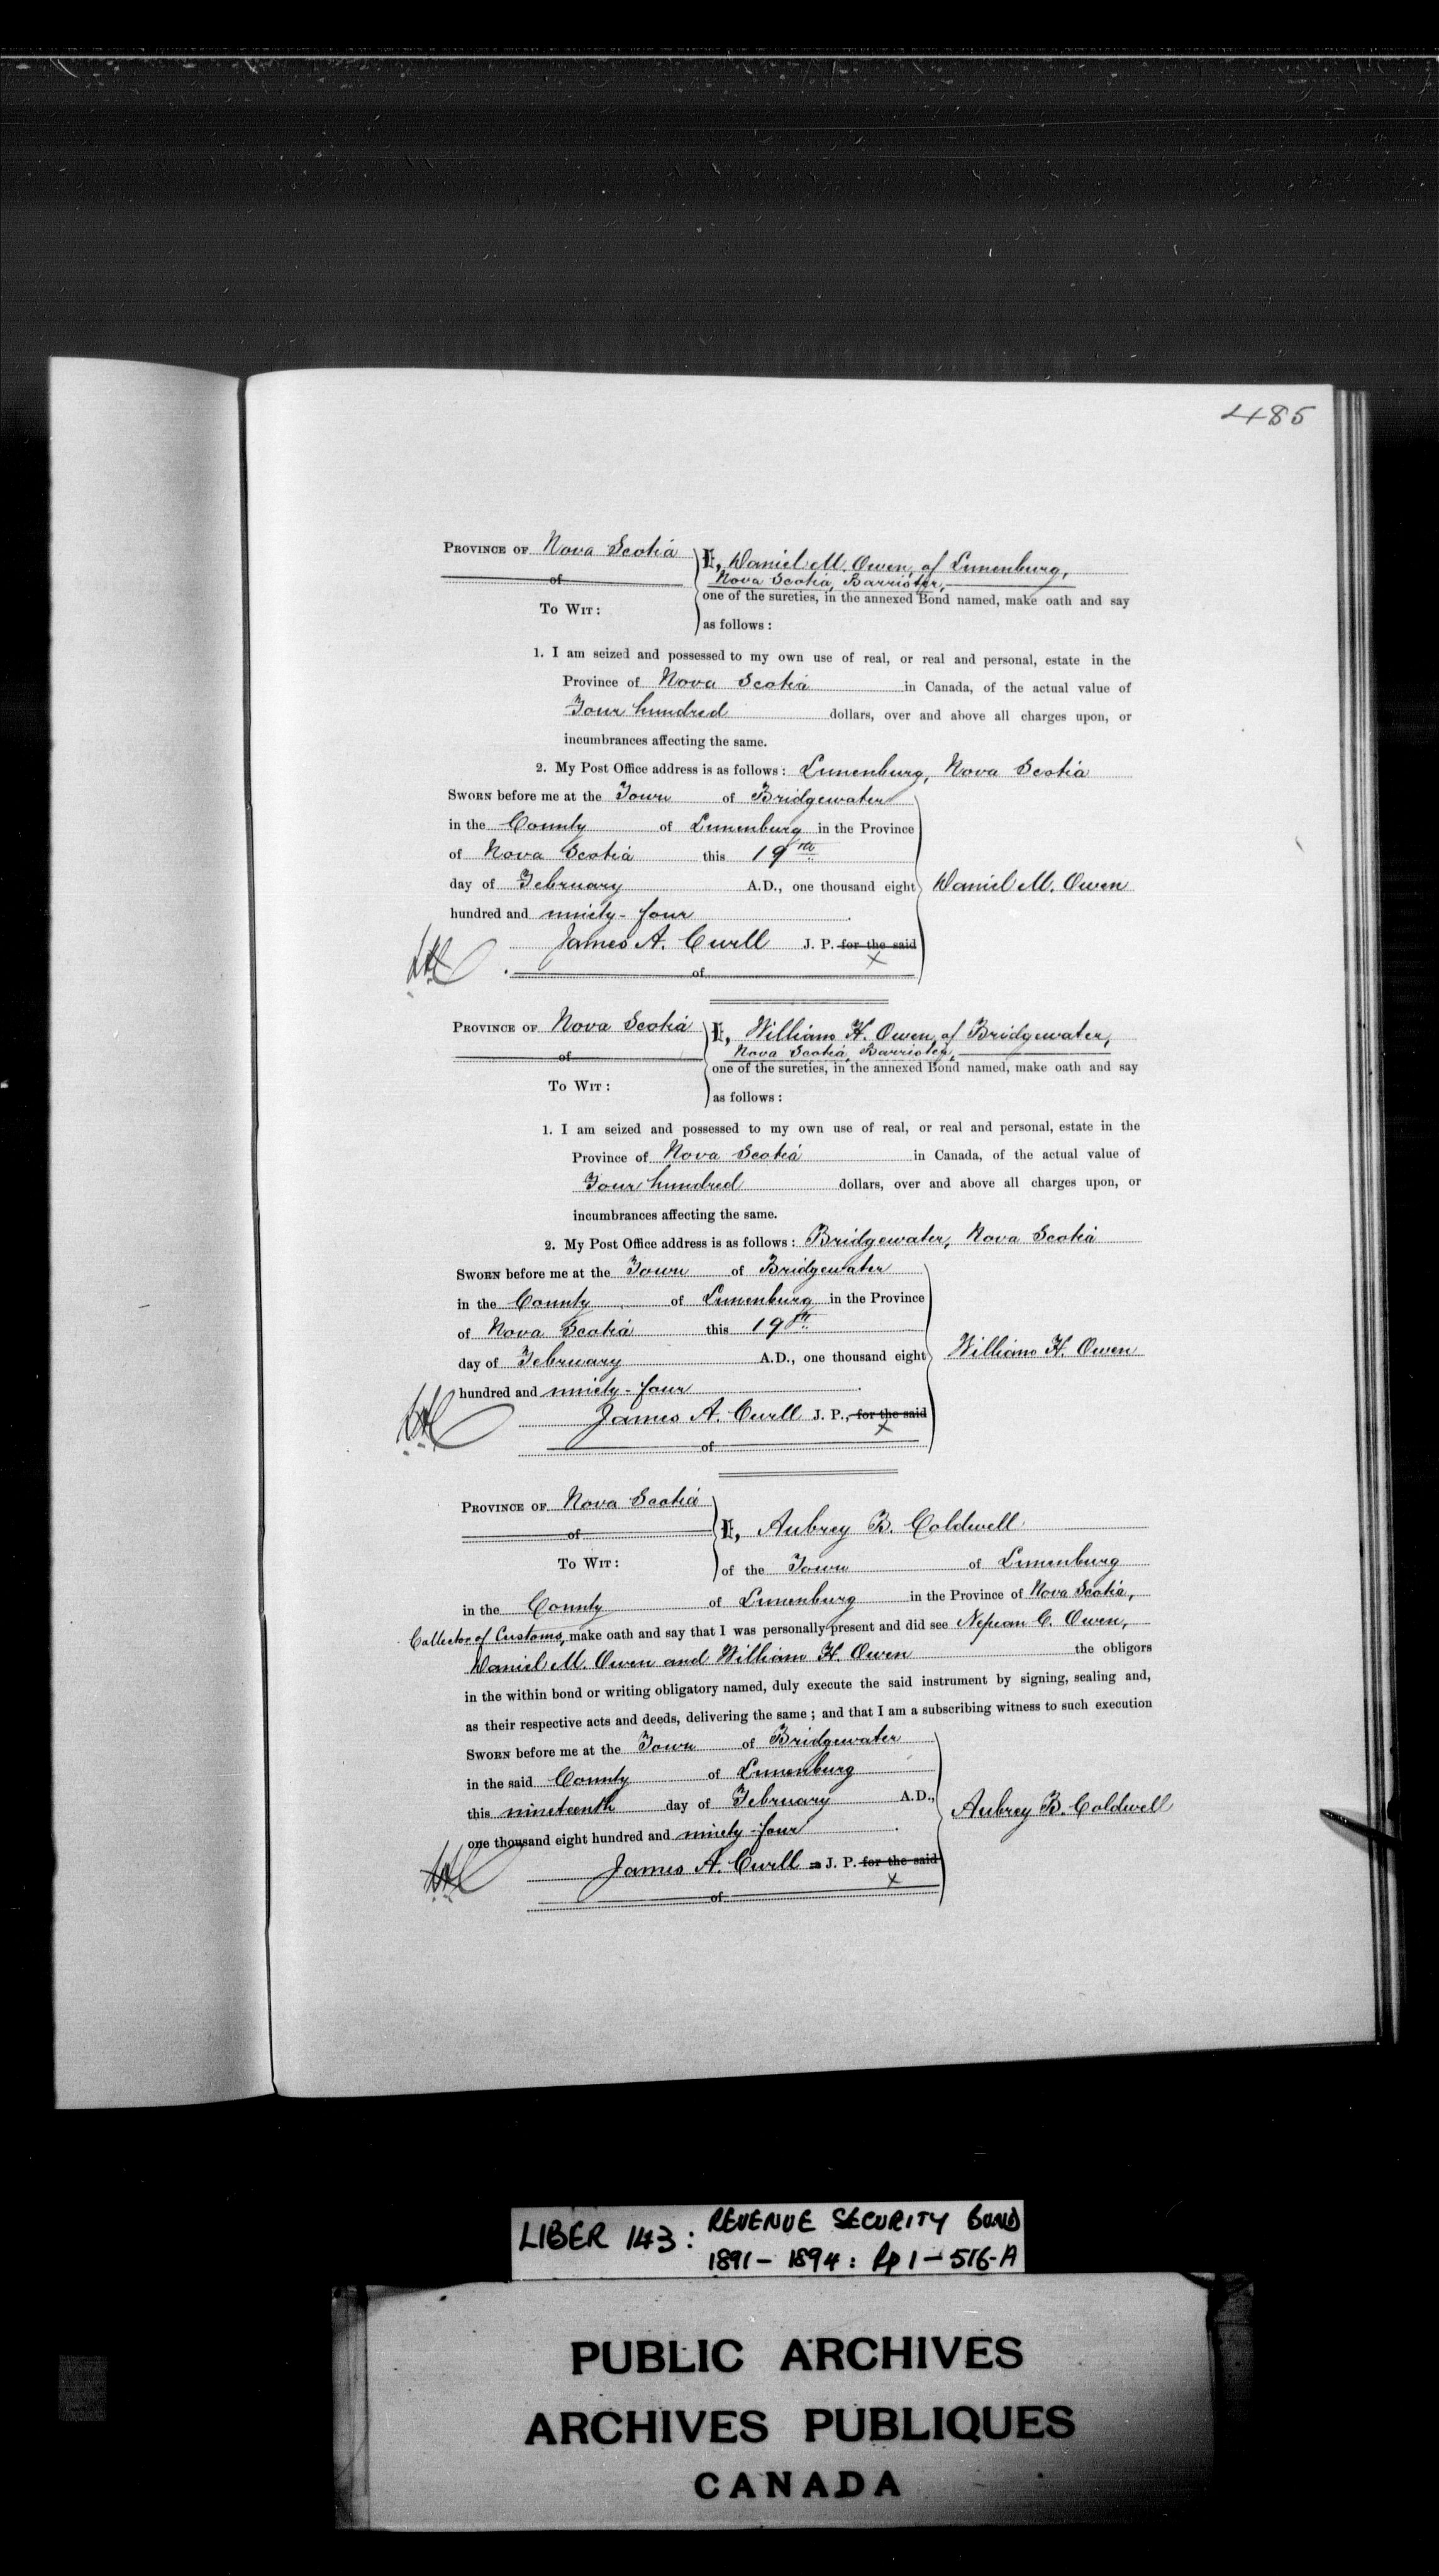 485
PROVINCE OF Nova Scotia
of
TO WIT:
I, Daniel M. Owen, of Lunenburg,
Nova Scotia, Barrister,
one of the sureties, in the annexed Bond named, make oath and say
as follows:
1. I am seized and possessed to my own use of real, or real and personal, estate in the
Province of Nova Scotia in Canada, of the actual value of
Four hundred dollars, over and above all charges upon, or
incumbrances affecting the same.
2. My Post Office address is as follows: Lunenburg, Nova Scotia
SWORN before me at the Town of Bridgewater
in the County of Lunenburg in the Province
of Nova Scotia this 19th
day of February A.D., one thousand eight
hundred and ninety-four
Daniel M. Owen
James A. Curll J. P. for the said
of
PROVINCE OF Nova Scotia
of
TO WIT:
I, William H. Owen, of Bridgewater,
Nova Scotia, Barrister,
one of the sureties, in the annexed Bond named, make oath and say
as follows:
1. I am seized and possessed to my own use of real, or real and personal, estate in the
Province of Nova Scotia in Canada, of the actual value of
Four hundred dollars, over and above all charges upon, or
incumbrances affecting the same.
2. My Post Office address is as follows: Bridgewater, Nova Scotia
SWORN before me at the Town of Bridgewater
in the County of Lunenburg in the Province
of Nova Scotia this 19th
day of February A.D., one thousand eight
hundred and ninety-four
William H. Owen
James A. Curll J. P., for the said
of
PROVINCE OF Nova Scotia
of
TO WIT:
I, Aubrey B. Caldwell
of the Town of Lunenburg
in the County of Lunenburg in the Province of Nova Scotia,
Collector of Customs, make oath and say that I was personally present and did see Nepean C. Owen,
Daniel M. Owen and William H. Owen the obligors
in the within bond or writing obligatory named, duly execute the said instrument by signing, sealing and,
as their respective acts and deeds, delivering the same; and that I am a subscribing witness to such execution
SWORN before me at the Town of Bridgewater
in the said County of Lunenburg
this nineteenth day of February A.D.,
one thousand eight hundred and ninety-four
Aubrey B. Caldwell
James A. Curll J. P. for the said
of
LIBER 143: REVENUE SECURITY BOND
1891-1894: Pp 1-516-A
PUBLIC ARCHIVES
ARCHIVES PUBLIQUES
CANADA